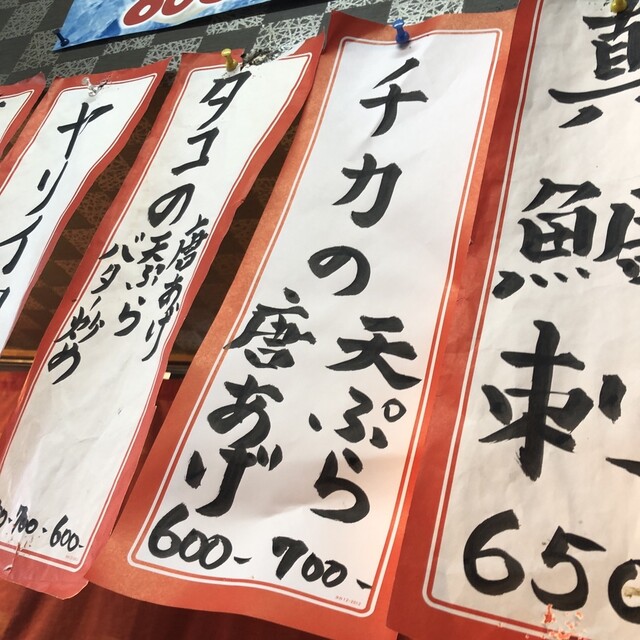 真鯛刺
650
チカの天ぷら
唐あげ
700-
600-
タコの天ぷら
唐あげ
バター炒め
700-600-
ヤリイカ